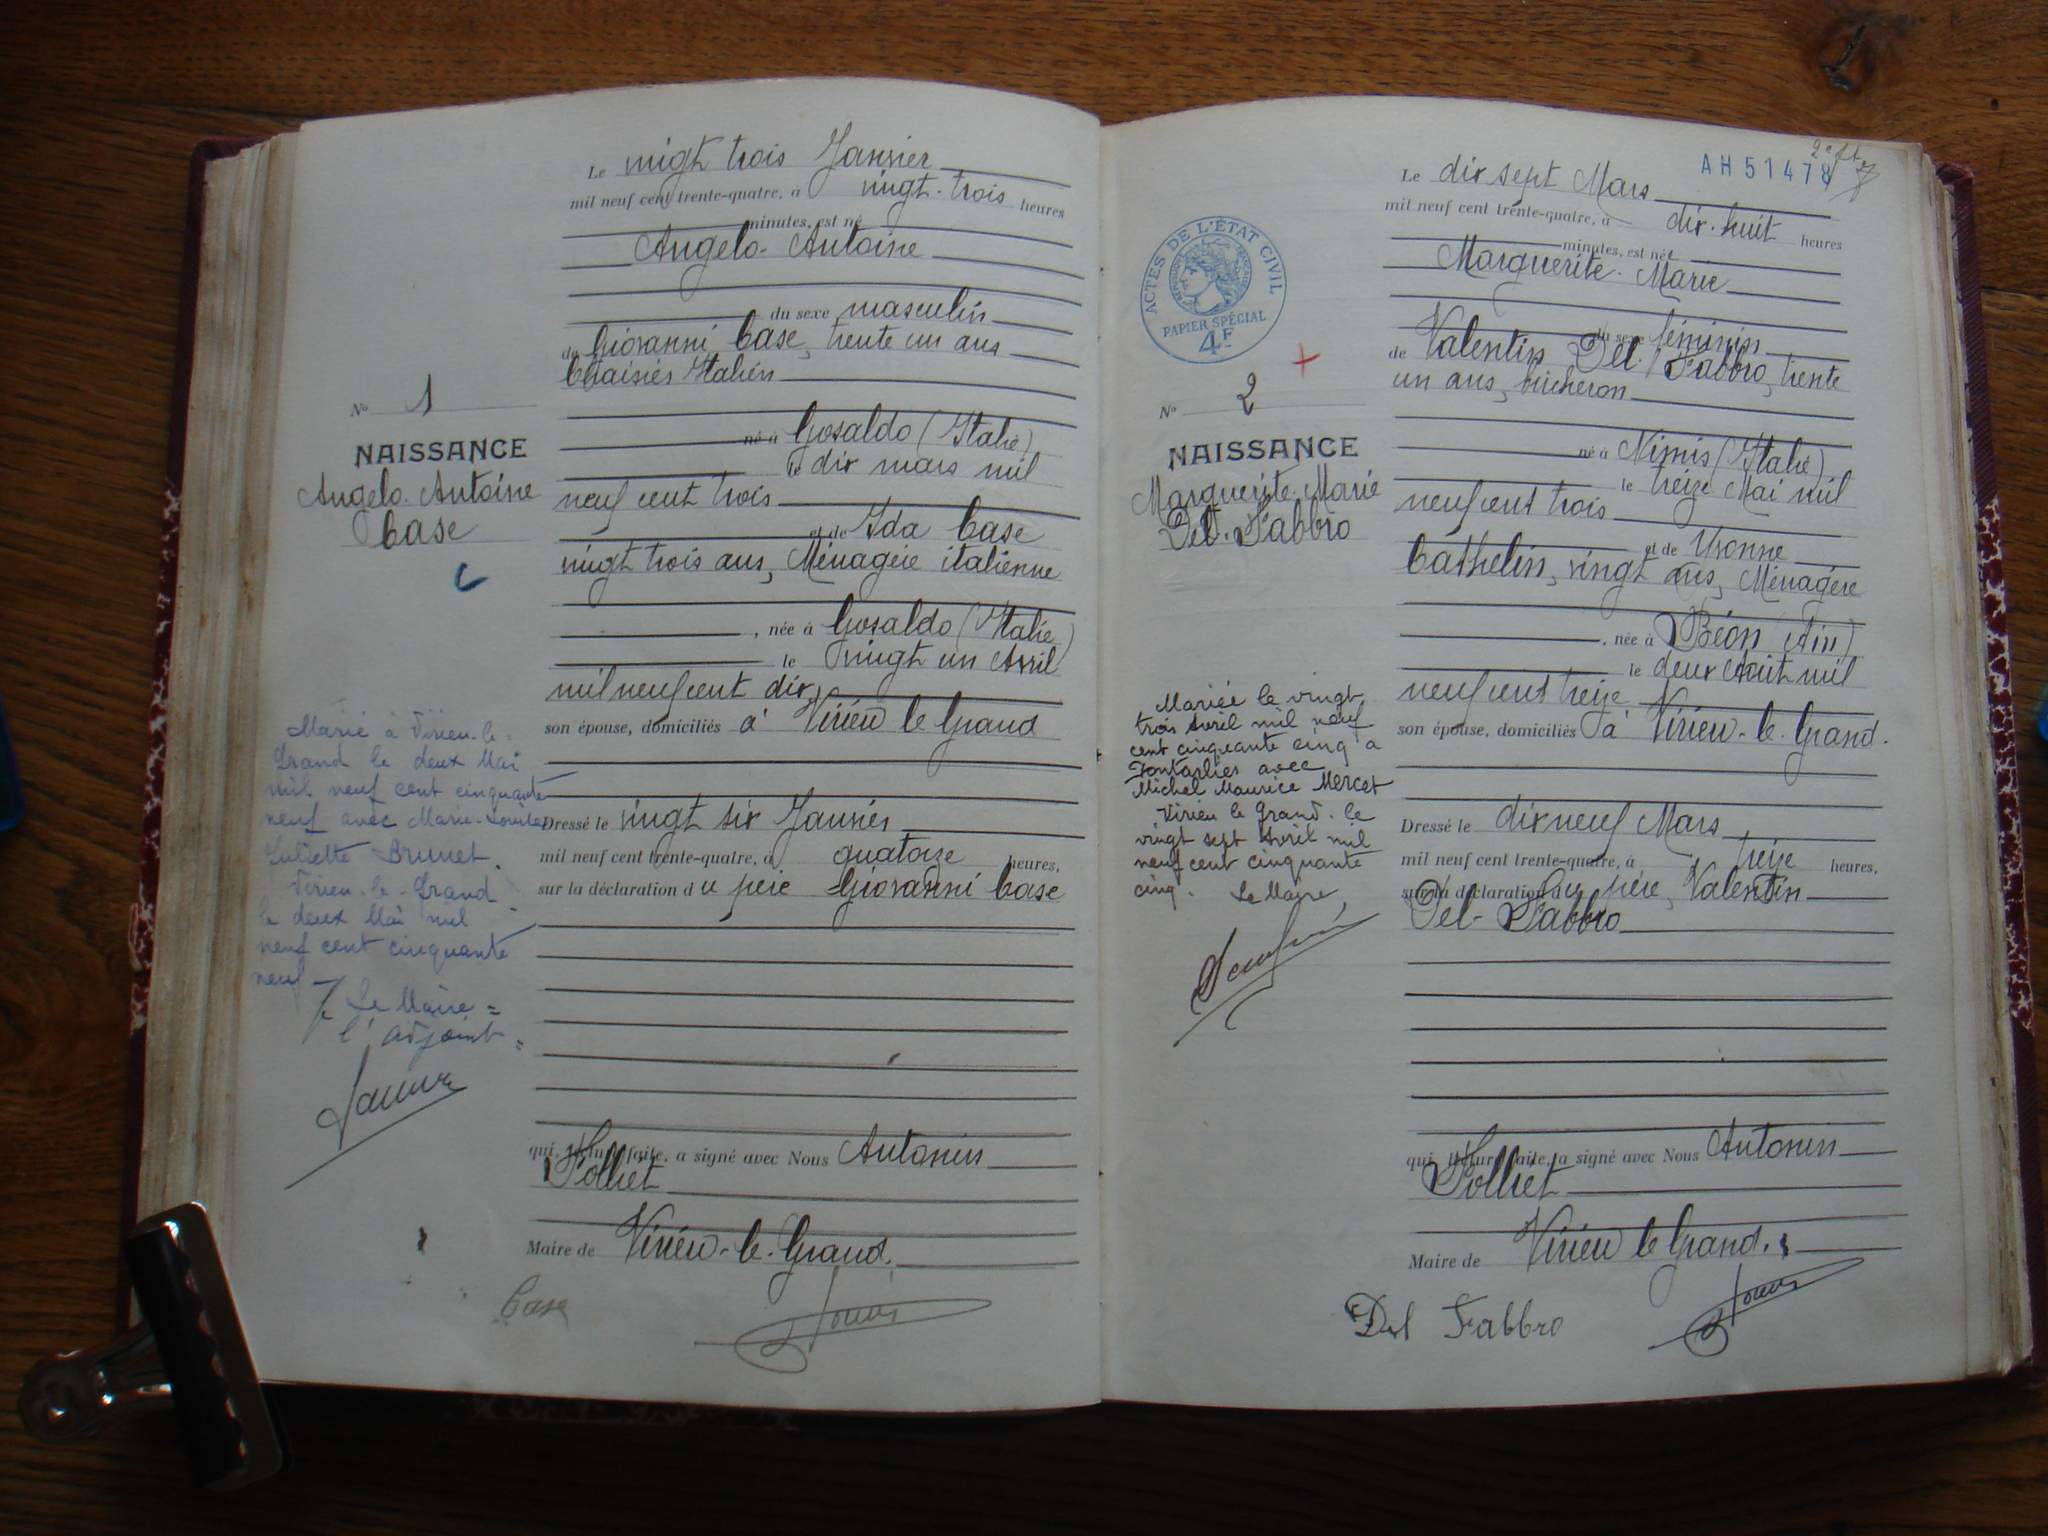 Le vingt trois Janvier
mil neuf cent trente-quatre, à vingt-trois heures
minutes, est né
Angelo-Antoine
du sexe masculin
de Giovanni Case, trente un ans
Italien
né à Gosaldo (Italie)
le dix mars mil
neuf cent trois
et de Ida Case
vingt trois ans, Ménagère italienne
, née à Gosaldo (Italie)
le vingt un Avril
mil neuf cent dix
son épouse, domiciliés à Virieu le Grand
Dressé le vingt six Janvier
mil neuf cent trente-quatre, à quatorze heures,
sur la déclaration du père Giovanni Case
qui, lecture faite, a signé avec Nous Antonin
Folliet
Maire de Virieu-le-Grand.
Case
No 1
NAISSANCE
Angelo-Antoine
Case
Marié à Virieu-le-
Grand le deux Mai
mil neuf cent cinquante
neuf avec Marie-Louise
Juliette Brunet.
Virieu-le-Grand
le deux Mai mil
neuf cent cinquante
neuf
Le Maire =
l'adjoint =
AH 51478
Le dix sept Mars
mil neuf cent trente-quatre, à dix-huit heures
minutes, est née
Marguerite-Marie
du sexe féminin
de Valentin Del-Fabbro, trente
un ans, bûcheron
né à Nimis (Italie)
le treize Mai mil
neuf cent trois
et de Yvonne
Cathelin, vingt ans, Ménagère
, née à Béon (Ain)
le deux Août mil
neuf cent treize
son épouse, domiciliés à Virieu-le-Grand.
Dressé le dix neuf Mars
mil neuf cent trente-quatre, à treize heures,
sur la déclaration du père, Valentin
Del-Fabbro
qui, lecture faite, a signé avec Nous Antonin
Folliet
Maire de Virieu le Grand.
Del Fabbro
ACTES DE L'ÉTAT CIVIL
PAPIER SPÉCIAL
4F
No 2
NAISSANCE
Marguerite-Marie
Del-Fabbro
Mariée le vingt
trois Avril mil neuf
cent cinquante cinq à
Pontarlier avec
Michel Maurice Mercet
Virieu le Grand. le
vingt sept Avril mil
neuf cent cinquante
cinq. Le Maire,